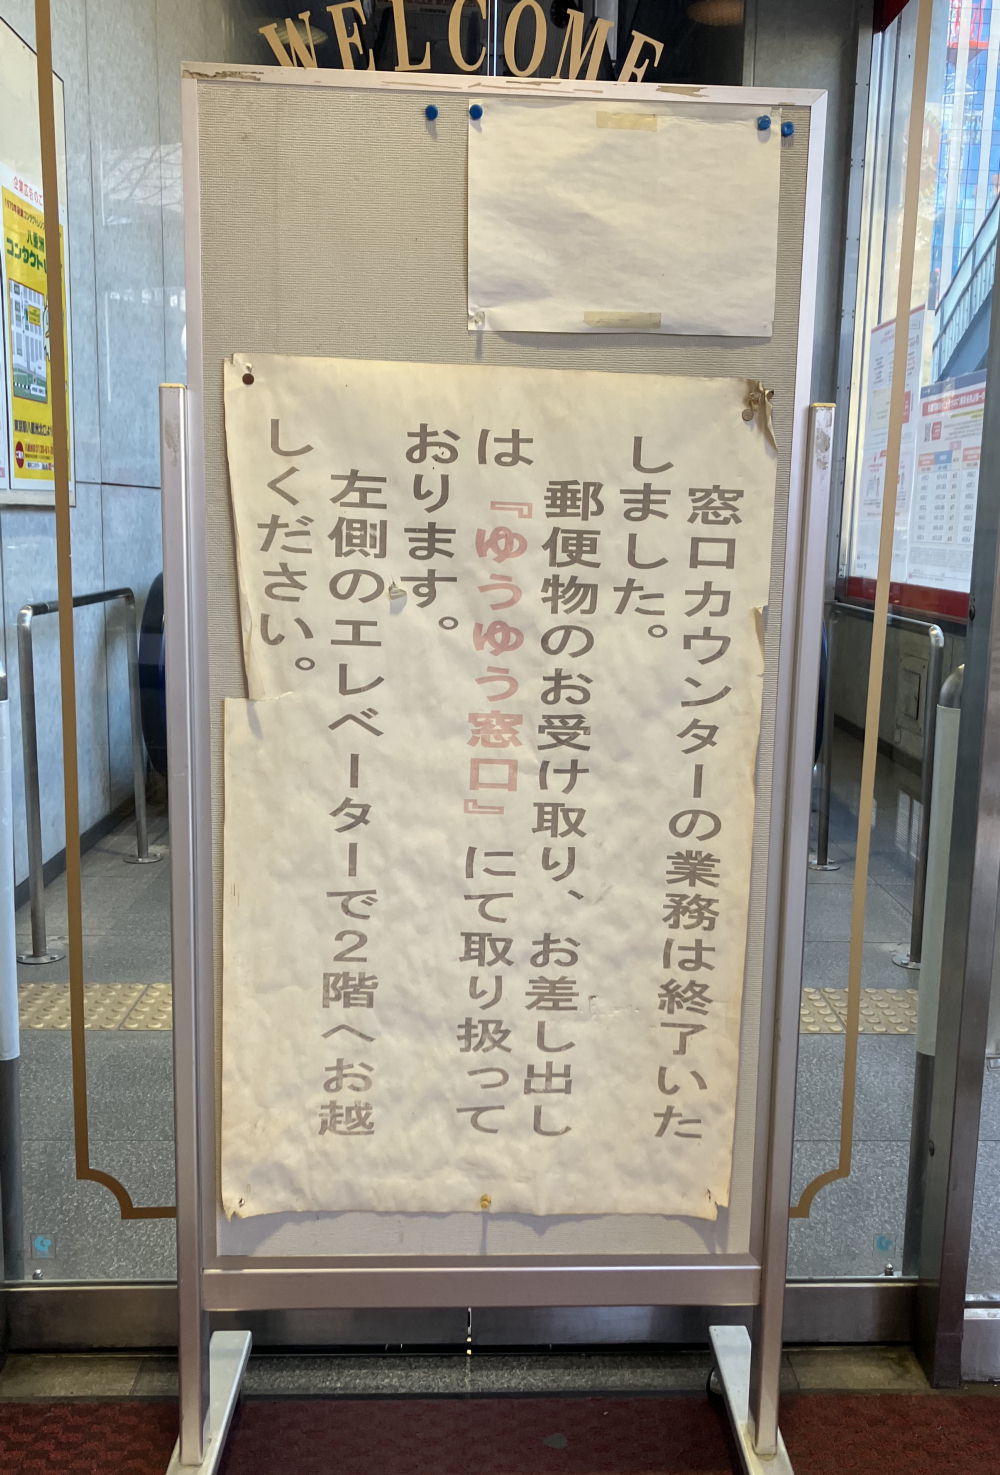 WELCOME
窓口カウンターの業務は終了いた
しました。
郵便物のお受け取り、お差し出し
は『ゆうゆう窓口』にて取り扱って
おります。
左側のエレベーターで2階へお越
しください。
コンタクト